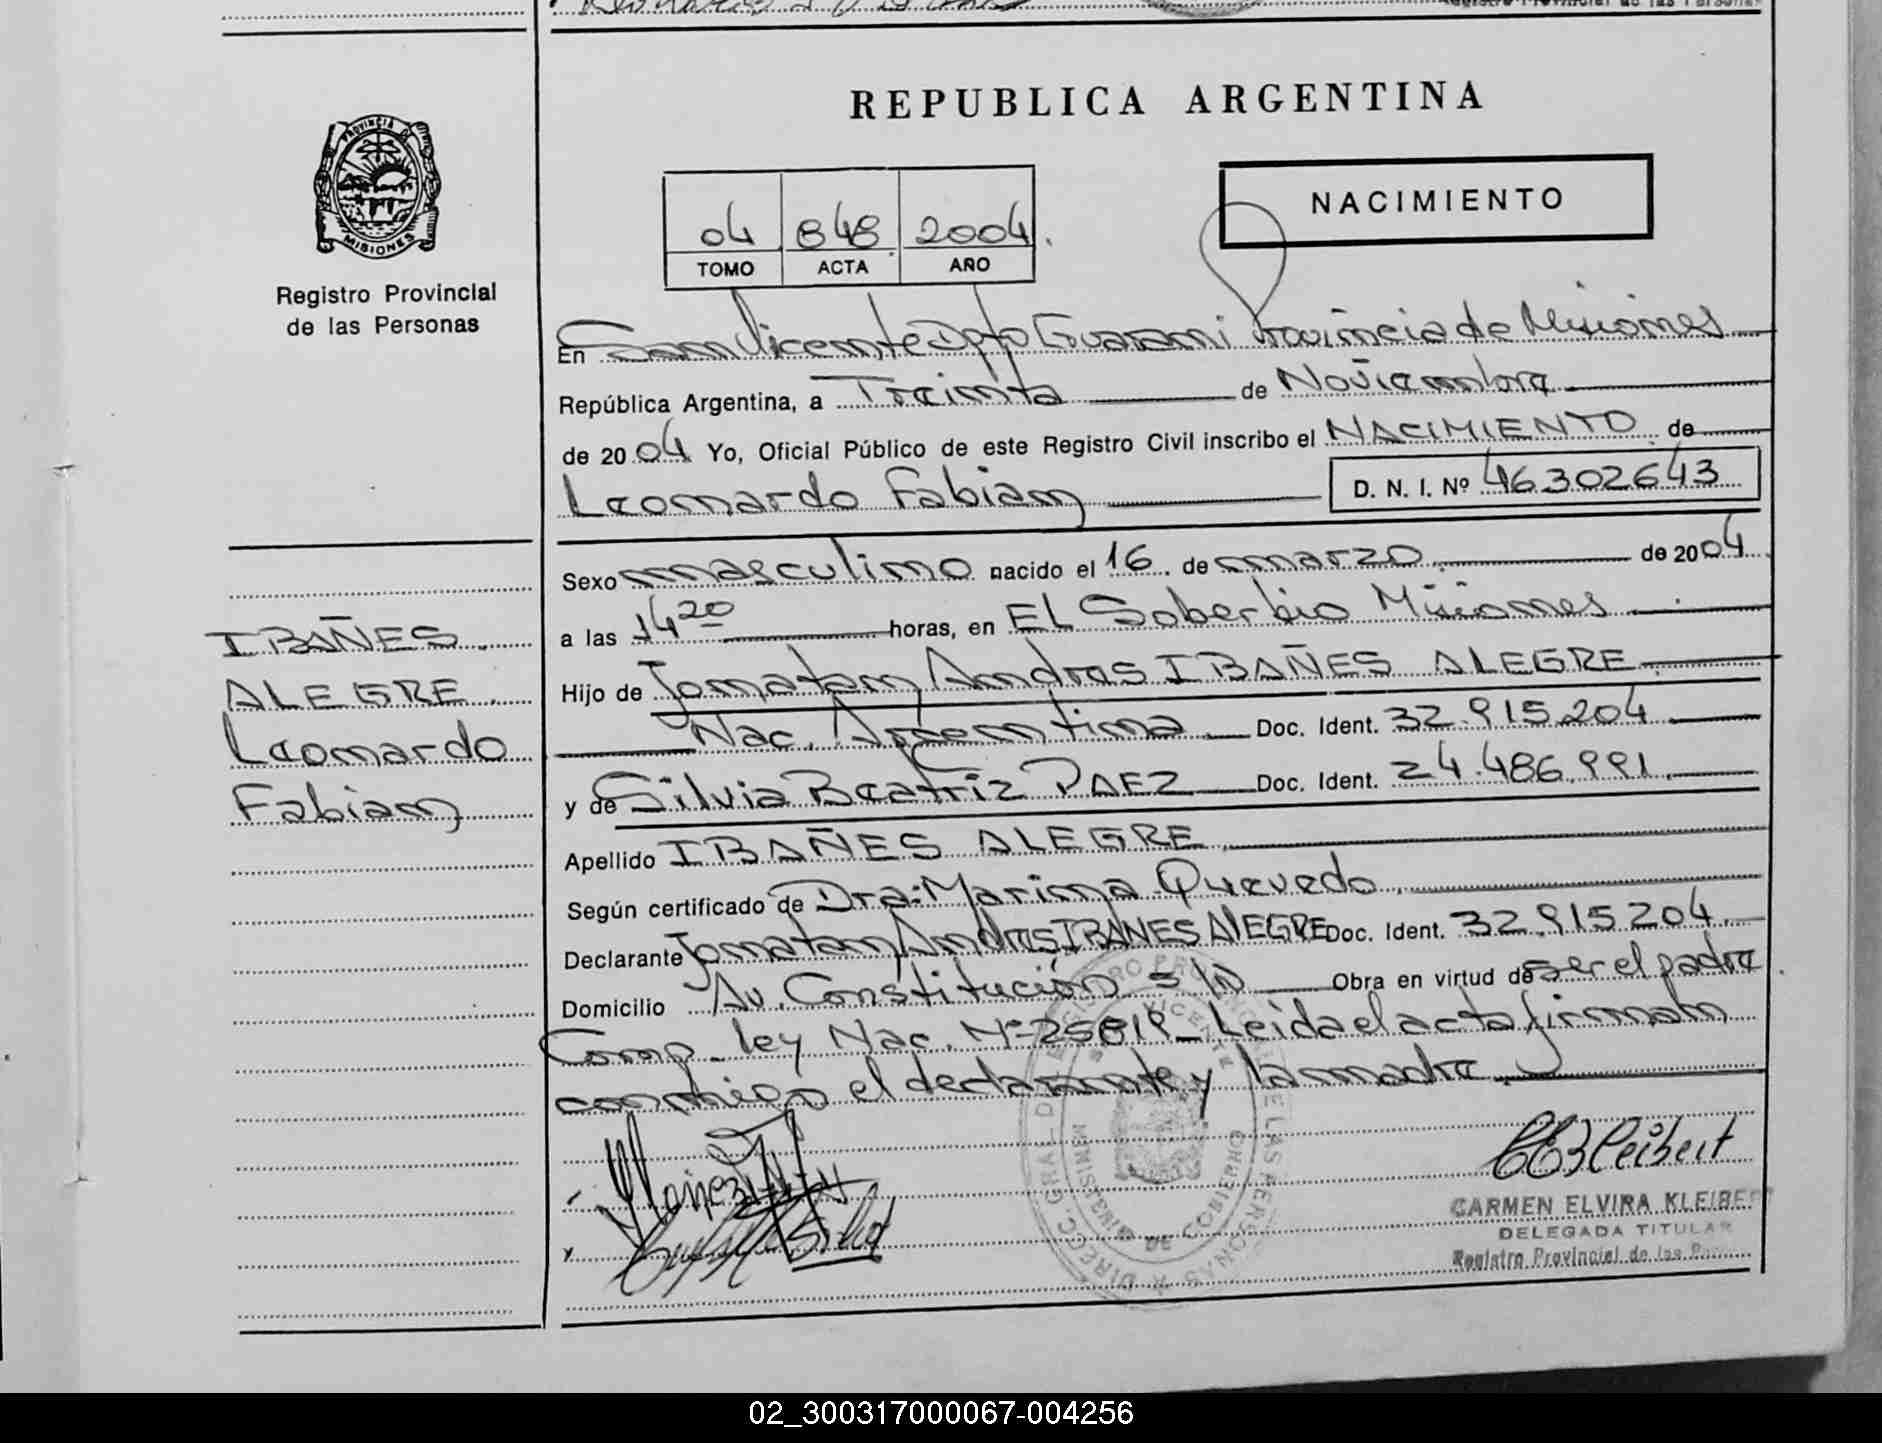 REPUBLICA ARGENTINA
PROVINCIA DE
MISIONES
Registro Provincial
de las Personas
04 848 2004
TOMO ACTA AÑO
NACIMIENTO
En San Vicente Dpto Guarani Provincia de Misiones
República Argentina, a Treinta de Noviembre
de 2004 Yo, Oficial Público de este Registro Civil inscribo el NACIMIENTO de
Leonardo Fabian D. N. I. Nº 46302643
Sexo masculino nacido el 16 de marzo de 2004
a las 14 20 horas, en EL Soberbio Misiones
Hijo de Jonatan Andres IBAÑES ALEGRE
Nac. Argentina Doc. Ident. 32.915.204
y de Silvia Beatriz PAEZ Doc. Ident. 24.486.991
Apellido IBAÑES ALEGRE
Según certificado de Dra: Marina Quevedo
Declarante Jonatan Andres IBAÑES ALEGRE Doc. Ident. 32.915.204
Domicilio Av. Constitución S/N Obra en virtud de ser el padre
Comp. ley Nac. Nº 25819_ Leida el acta firman
conmigo el declarante y la madre
IBAÑES
ALEGRE
Leonardo
Fabian
CARMEN ELVIRA KLEIBER
DELEGADA TITULAR
Registro Provincial de las
MINISTERIO DE GOBIERNO
02_300317000067-004256